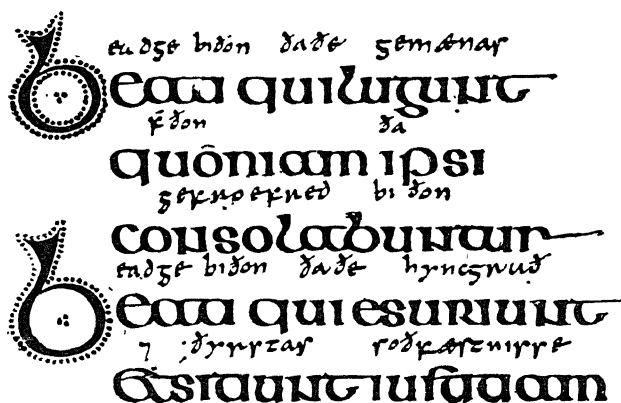 eadge biðon ðaðe gemænas
Beati qui lugunt
f̄ðon ða
quôniam ipsi
gefroefred bi ðon
consolabuntur
eadge biðon ðaðe hyncgrað
Beati qui esuriunt
⁊ ðyrstas soðfæstnisse
& sitiunt iustitiam